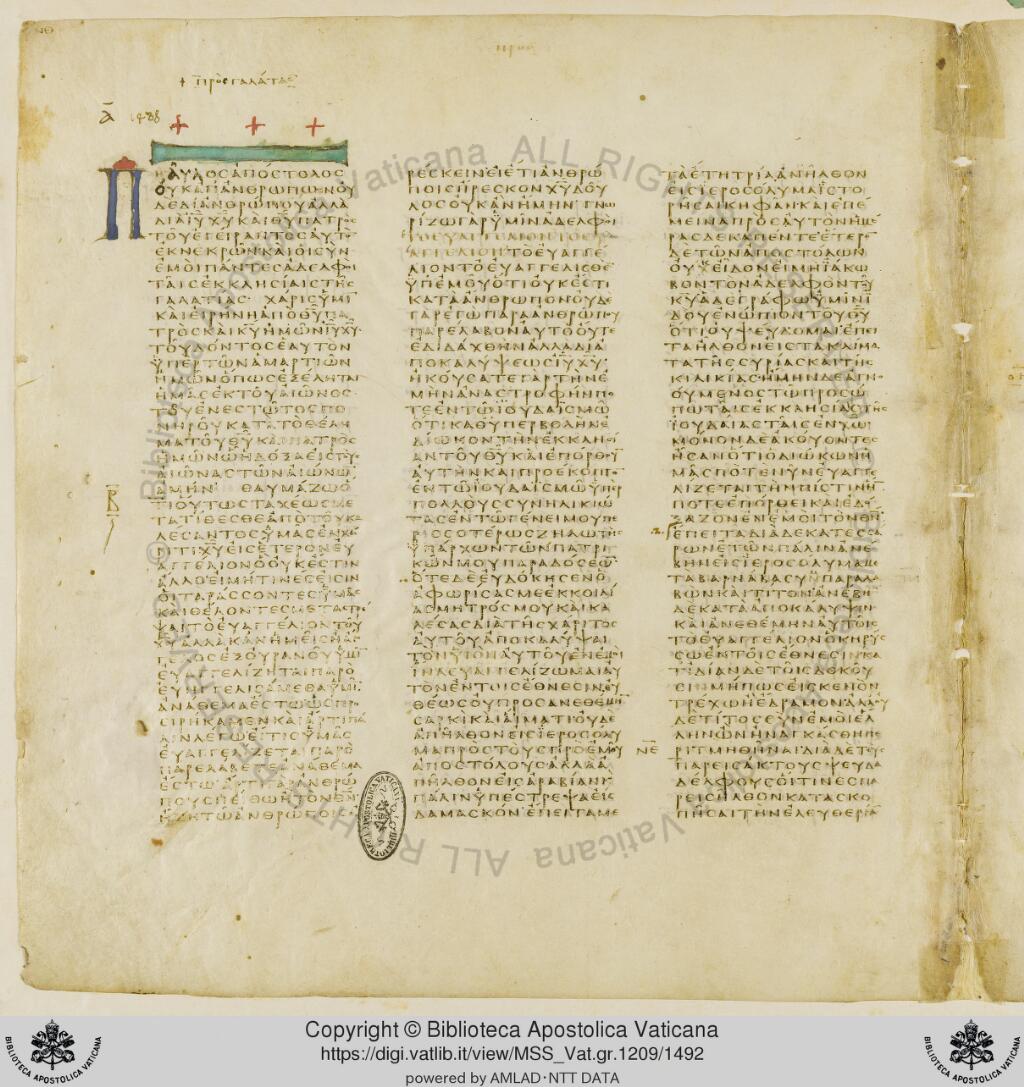 + ΠΡΟϹ ΓΑΛΑΤΑϹ
Α 1488
ΠΑΥΛΟϹΑΠΟϹΤΟΛΟϹ
ΟΥΚΑΠΑΝΘΡΩΠΩΝΟΥ
ΔΕΔΙΑΝΘΡΩΠΟΥΑΛΛΑ
ΔΙΑΙΥΧΥΚΑΙΘΥΠΑΤΡΟϹ
ΤΟΥΕΓΕΙΡΑΝΤΟϹΑΥΤΟ
ΕΚΝΕΚΡΩΝΚΑΙΟΙϹΥΝ
ΕΜΟΙΠΑΝΤΕϹΑΔΕΛΦΟΙ
ΤΑΙϹΕΚΚΛΗϹΙΑΙϹΤΗϹ
ΓΑΛΑΤΙΑϹ· ΧΑΡΙϹΥΜΙ
ΚΑΙΕΙΡΗΝΗΑΠΟΘΥΠΑ
ΤΡΟϹΚΑΙΚΥΗΜΩΝΙΥΧΥ
ΤΟΥΔΟΝΤΟϹΕΑΥΤΟΝ
ΥΠΕΡΤΩΝΑΜΑΡΤΙΩΝ
ΗΜΩΝΟΠΩϹΕΞΕΛΗΤΑΙ
ΗΜΑϹΕΚΤΟΥΑΙΩΝΟϹ
ΤΟΥΕΝΕϹΤΩΤΟϹΠΟ
ΝΗΡΟΥΚΑΤΑΤΟΘΕΛΗ
ΜΑΤΟΥΘΥΚΑΙΠΑΤΡΟϹ
ΗΜΩΝΩΗΔΟΞΑΕΙϹΤΟΥ
ΑΙΩΝΑϹΤΩΝΑΙΩΝΩ
ΑΜΗΝ· ΘΑΥΜΑΖΩΟ
Β
ΤΙΟΥΤΩϹΤΑΧΕΩϹΜΕ
ΤΑΤΙΘΕϹΘΕΑΠΟΤΟΥΚΑ
ΛΕϹΑΝΤΟϹΥΜΑϹΕΝΧΑ
ΡΙΤΙΧΥΕΙϹΕΤΕΡΟΝΕΥ
ΑΓΓΕΛΙΟΝΟΟΥΚΕϹΤΙΝ
ΑΛΛΟΕΙΜΗΤΙΝΕϹΕΙϹΙΝ
ΟΙΤΑΡΑϹϹΟΝΤΕϹΥΜΑϹ
ΚΑΙΘΕΛΟΝΤΕϹΜΕΤΑϹΤΡΕ
ΨΑΙΤΟΕΥΑΓΓΕΛΙΟΝΤΟΥ
ΧΥΑΛΛΑΚΑΝΗΜΕΙϹΗΑΓ
ΓΕΛΟϹΕΞΟΥΡΑΝΟΥΥΜΙ
ΕΥΑΓΓΕΛΙΖΗΤΑΙΠΑΡΟ
ΕΥΗΓΓΕΛΙϹΑΜΕΘΑΥΜΙ
ΑΝΑΘΕΜΑΕϹΤΩΩϹΠΡΟ
ΕΙΡΗΚΑΜΕΝΚΑΙΑΡΤΙΠΑ
ΛΙΝΛΕΓΩΕΙΤΙϹΥΜΑϹ
ΕΥΑΓΓΕΛΙΖΕΤΑΙΠΑΡΟ
ΠΑΡΕΛΑΒΕΤΕΑΝΑΘΕΜΑ
ΕϹΤΩΑΡΤΙΓΑΡΑΝΘΡΩ
ΠΟΥϹΠΕΙΘΩΗΤΟΝΘΝ
ΗΖΗΤΩΑΝΘΡΩΠΟΙϹ
ΡΕϹΚΕΙΝΕΙΕΤΙΑΝΘΡΩ
ΠΟΙϹΗΡΕϹΚΟΝΧΥΔΟΥ
ΛΟϹΟΥΚΑΝΗΜΗΝΓΝΩ
ΡΙΖΩΓΑΡΥΜΙΝΑΔΕΛΦΟΙ
ΑΓΓΕΛΙΟΝΤΟΕΥΑΓΓΕ
ΛΙΟΝΤΟΕΥΑΓΓΕΛΙϹΘΕ
ΥΠΕΜΟΥΟΤΙΟΥΚΕϹΤΙ
ΚΑΤΑΑΝΘΡΩΠΟΝΟΥΔΕ
ΓΑΡΕΓΩΠΑΡΑΑΝΘΡΩΠΟΥ
ΠΑΡΕΛΑΒΟΝΑΥΤΟΟΥΤΕ
ΕΔΙΔΑΧΘΗΝΑΛΛΑΔΙΑ
ΠΟΚΑΛΥΨΕΩϹΙΥΧΥ
ΗΚΟΥϹΑΤΕΓΑΡΤΗΝΕ
ΜΗΝΑΝΑϹΤΡΟΦΗΝΠΟ
ΤΕΕΝΤΩΙΟΥΔΑΙϹΜΩ
ΟΤΙΚΑΘΥΠΕΡΒΟΛΗΝΕ
ΔΙΩΚΟΝΤΗΝΕΚΚΛΗϹΙ
ΑΝΤΟΥΘΥΚΑΙΕΠΟΡΘΟΥ
ΑΥΤΗΝΚΑΙΠΡΟΕΚΟΠΤ
ΕΝΤΩΙΟΥΔΑΙϹΜΩΥΠΕΡ
ΠΟΛΛΟΥϹϹΥΝΗΛΙΚΙΩ
ΤΑϹΕΝΤΩΓΕΝΕΙΜΟΥΠΕ
ΡΙϹϹΟΤΕΡΩϹΖΗΛΩΤΗϹ
ΥΠΑΡΧΩΝΤΩΝΠΑΤΡΙ
ΚΩΝΜΟΥΠΑΡΑΔΟϹΕΩ
ΟΤΕΔΕΕΥΔΟΚΗϹΕΝΟ
ΑΦΩΡΙϹΑϹΜΕΕΚΚΟΙΛΙ
ΑϹΜΗΤΡΟϹΜΟΥΚΑΙΚΑ
ΛΕϹΑϹΔΙΑΤΗϹΧΑΡΙΤΟϹ
ΑΥΤΟΥΑΠΟΚΑΛΥΨΑΙ
ΤΟΝΥΙΟΝΑΥΤΟΥΕΝΕΜΟΙ
ΙΝΑΕΥΑΓΓΕΛΙΖΩΜΑΙΑΥ
ΤΟΝΕΝΤΟΙϹΕΘΝΕϹΙΝΕΥ
ΘΕΩϹΟΥΠΡΟϹΑΝΕΘΕΜΗΝ
ϹΑΡΚΙΚΑΙΑΙΜΑΤΙΟΥΔΕ
ΑΠΗΛΘΟΝΕΙϹΙΕΡΟϹΟΛΥ
ΜΑΠΡΟϹΤΟΥϹΠΡΟΕΜΟΥ
ΑΠΟϹΤΟΛΟΥϹΑΛΛΑΑ
ΠΗΛΘΟΝΕΙϹΑΡΑΒΙΑΝΚ
ΠΑΛΙΝΥΠΕϹΤΡΕΨΑΕΙϹ
ΔΑΜΑϹΚΟΝΕΠΕΙΤΑΜΕ
ΤΑΕΤΗΤΡΙΑΑΝΗΛΘΟΝ
ΕΙϹΙΕΡΟϹΟΛΥΜΑΙϹΤΟ
ΡΗϹΑΙΚΗΦΑΝΚΑΙΕΠΕ
ΜΕΙΝΑΠΡΟϹΑΥΤΟΝΗΜΕ
ΡΑϹΔΕΚΑΠΕΝΤΕΕΤΕΡΟ
ΔΕΤΩΝΑΠΟϹΤΟΛΩΝ
ΟΥΧΕΙΔΟΝΕΙΜΗΙΑΚΩ
ΒΟΝΤΟΝΑΔΕΛΦΟΝΤΟΥ
ΚΥΑΔΕΓΡΑΦΩΥΜΙΝΙ
ΔΟΥΕΝΩΠΙΟΝΤΟΥΘΥ
ΟΤΙΟΥΨΕΥΔΟΜΑΙΕΠΕΙ
ΤΑΗΛΘΟΝΕΙϹΤΑΚΛΙΜΑ
ΤΑΤΗϹϹΥΡΙΑϹΚΑΙΤΗϹ
ΚΙΛΙΚΙΑϹ·ΗΜΗΝΔΕΑΓΝ
ΟΥΜΕΝΟϹΤΩΠΡΟϹΩ
ΠΩΤΑΙϹΕΚΚΛΗϹΙΑΙϹΤΗϹ
ΙΟΥΔΑΙΑϹΤΑΙϹΕΝΧΩ
ΜΟΝΟΝΔΕΑΚΟΥΟΝΤΕϹ
ΗϹΑΝΟΤΙΟΔΙΩΚΩΝΗ
ΜΑϹΠΟΤΕΝΥΝΕΥΑΓΓΕ
ΛΙΖΕΤΑΙΤΗΝΠΙϹΤΙΝΗ
ΠΟΤΕΕΠΟΡΘΕΙΚΑΙΕΔΟ
ΞΑΖΟΝΕΝΕΜΟΙΤΟΝΘΝ
ΕΠΕΙΤΑΔΙΑΔΕΚΑΤΕϹϹΑ
ΡΩΝΕΤΩΝΠΑΛΙΝΑΝΕ
ΒΗΝΕΙϹΙΕΡΟϹΟΛΥΜΑΜΕ
ΤΑΒΑΡΝΑΒΑϹΥΝΠΑΡΑΛΑ
ΒΩΝΚΑΙΤΙΤΟΝΑΝΕΒΗ
ΔΕΚΑΤΑΑΠΟΚΑΛΥΨΙΝ
ΚΑΙΑΝΕΘΕΜΗΝΑΥΤΟΙϹ
ΤΟΕΥΑΓΓΕΛΙΟΝΟΚΗΡΥϹ
ϹΩΕΝΤΟΙϹΕΘΝΕϹΙΝΚΑ
ΤΙΔΙΑΝΔΕΤΟΙϹΔΟΚΟΥ
ϹΙΝΜΗΠΩϹΕΙϹΚΕΝΟΝ
ΤΡΕΧΩΗΕΔΡΑΜΟΝΑΛΛΟΥ
ΔΕΤΙΤΟϹϹΥΝΕΜΟΙΕΛ
ΛΗΝΩΝΗΝΑΓΚΑϹΘΗΠΕ
ΝΕ
ΡΙΤΜΗΘΗΝΑΙΔΙΑΔΕΤΟΥϹ
ΠΑΡΕΙϹΑΚΤΟΥϹΨΕΥΔΑ
ΔΕΛΦΟΥϹΟΙΤΙΝΕϹΠΑ
ΡΕΙϹΗΛΘΟΝΚΑΤΑϹΚΟ
ΠΗϹΑΙΤΗΝΕΛΕΥΘΕΡΙΑ
Copyright © Biblioteca Apostolica Vaticana
https://digi.vatlib.it/view/MSS_Vat.gr.1209/1492
powered by AMLAD·NTT DATA
BIBLIOTECA APOSTOLICA VATICANA
BIBLIOTECA APOSTOLICA VATICANA